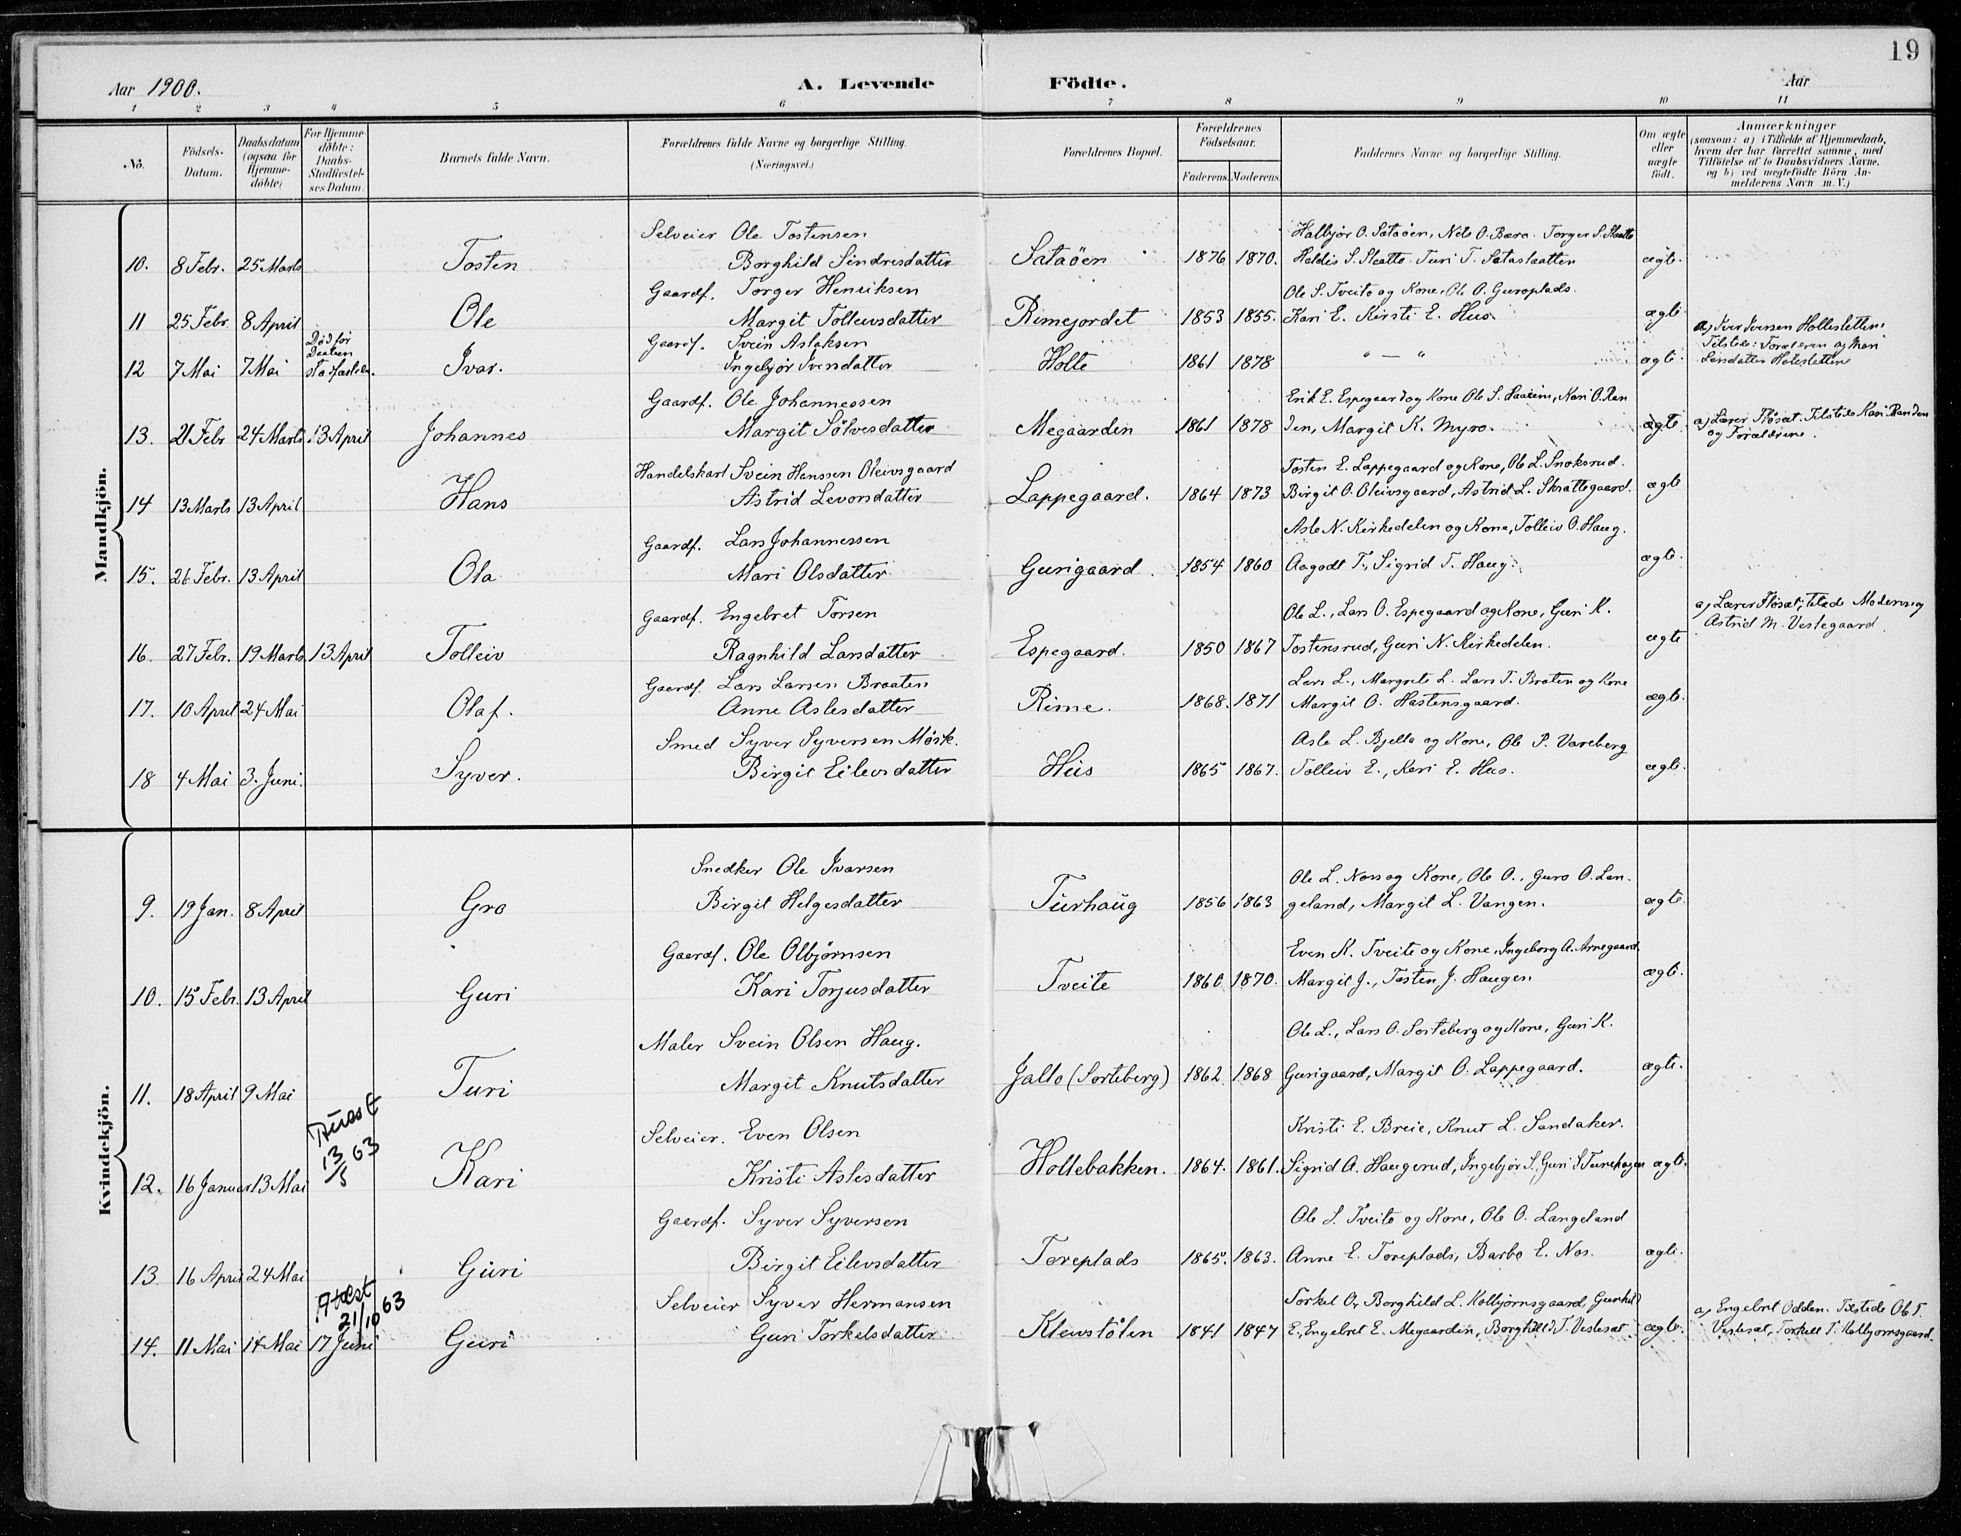 19
Aar 1900. A. Levende Födte. Aar
1 2 3 4 5 6 7 8 9 10 11
No. Födsels-Datum. Daabsdatum (ogsaa for Hjemme-døbte) For Hjemme-døbte: Daabs-Stadfæstel-ses Datum. Barnets fulde Navn. Forældrenes fulde Navne og borgerlige Stilling. (Næringsvei.) Forældrenes Bopæl. Forældrenes Födselsaar. Faderens. Moderens. Faddernes Navne og borgerlige Stilling. Om ægte eller uægte födt. Anmærkninger (saasom: a) i Tilfælde af Hjemmedaab, hvem der har forrettet samme, med Tilföielse af to Daabsvidners Navne, og b) ved uægtefödte Börn An-melderens Navn m. V.)
Mandkjön.
Selveier Ole Tostensen Halbjör O. Sataöen, Nels O. Bæra. Torger S. Slaatto
10. 8 Febr. 25 Marts Tosten Borghild Sindresdatter Sataöen 1876 1870. Heldis S. Slaatto. Turi T. Sataslaatten ægte.
Gaardf. Torger Henriksen Ole S. Tveito og Kone, Ole O. Guroplads.
11 25 Febr. 8 April Ole Margit Tollevsdatter Rimejordet 1853 1855. Kari E. Kirsti E. Hus. ægte
Død før Daaben Gaardf. Svein Aslaksen a) Iver Iversen Hollesletten.
12 7 Mai 7 Mai stadfæstedes. Ivar. Ingebjør Ivensdatter Holto 1861 1878 " — " ægte. Tilstede: Forældrene og Mari Larsdatter Holeslette
Gaardf. Ole Johannessen Erik E. Espegaard og Kone Ole S. Haaheim, Kari O. Ran
13. 21 Febr 24 Marts 13 April Johannes Margit Sølvesdatter Megaarden 1861 1878 den, Margit K. Myro. ægte a) Lærer Fløsat. Tilstede Kari Randen og Forældrene.
Handelskarl Svein Hanssen Oleivsgaard Tosten E. Lappegaard og Kone, Ole L. Snoksrud.
14 13 Marts 13 April Hans Astrid Levorsdatter Lappegaard. 1864 1873 Birgit O. Oleivsgaard, Astrid L. Skrattegaard. ægte
Gaardf. Lars Johannessen Asle N. Kirkedelen og Kone, Tolleiv O. Haug.
15. 26 Febr. 13 April Ola Mari Olsdatter Gurigaard. 1854 1860 Aagodt T., Sigrid T. Haug. ægte.
Gaardf. Engebret Torsen Ole L., Lars O. Espegaard og Kone, Guri K. a) Lærer Fløsat; tilstede Moderen og
16. 27 Febr. 19 Marts 13 April Tolleiv Ragnhild Larsdatter Espegaard. 1850 1867 Tostensrud, Guri N. Kirkedelen. ægte Astrid M. Vestegaard
Gaardf. Lars Larsen Braaten Lars L., Margrete L. Lars T. Braten og Kone
17. 10 April 24 Mai Olaf. Anne Aslesdatter Rime. 1868. 1871 Margit O. Hastensgaard. ægte.
Smed Syver Syversen Mørk. Asle L. Bjella og Kone, Ole P. Vareberg
18 4 Mai 3. Juni. Syver. Birgit Eilevsdatter Hus 1865 1867. Tolleiv E., Kari E. Hus. ægte.
Kvindekjön.
Snedker Ole Ivarsen Ole L. Noss og Kone, Ole O., Guro O. Lan-
9. 19 Jan. 8 April Gro Birgit Helgesdatter Turhaug 1856 1863 geland, Margit L. Vangen. ægte.
Gaardf. Ole Olbjørnsen Even K. Tveite og Kone, Ingeborg A. Arnegaard.
10. 15 Febr. 13 April Guri Kari Torjusdatter Tveite 1860 1870. Margit J., Tosten J. Haugen ægte.
Maler Svein Olsen Haug. Ole L., Lars O. Sorteberg og Kone, Guri K.
11. 18 April 9 Mai Turi Margit Knutsdatter Jallo (Sorteberg) 1862 1868 Gurigaard, Margit O. Lappegaard. ægte.
Attest 13/5 63 Selveier. Even Olsen Kristi E. Breie, Knut L. Sandaker.
12. 16 Januar 13 Mai Kari Kristi Aslesdatter Hollebakken. 1864. 1861. Sigrid A. Haugerud, Ingebjør S., Guri S. Turehagen ægte.
Gaardf. Syver Syversen Ole S. Tveito og Kone, Ole O. Langeland
13 16 April 24 Mai Guri Birgit Eilevsdatter Toreplads 1865. 1863. Anne E. Toreplads, Barbo E. Nos. ægte.
Attest 21/10 63 Selveier Syver Hermansen Torkel O., Borghild L. Kolbjørnsgaard, Gunhild a) Engebret Odden. Tilstede Ole T.
14. 11 Mai 14 Mai 17 Juni Guri Guri Torkelsdatter Klevstölen 1841 1847 E., Engebret E. Megaarden, Borghild T. Veslesæt. ægte. Veslesæt, Torkell T. Kolbjørnsgaard.